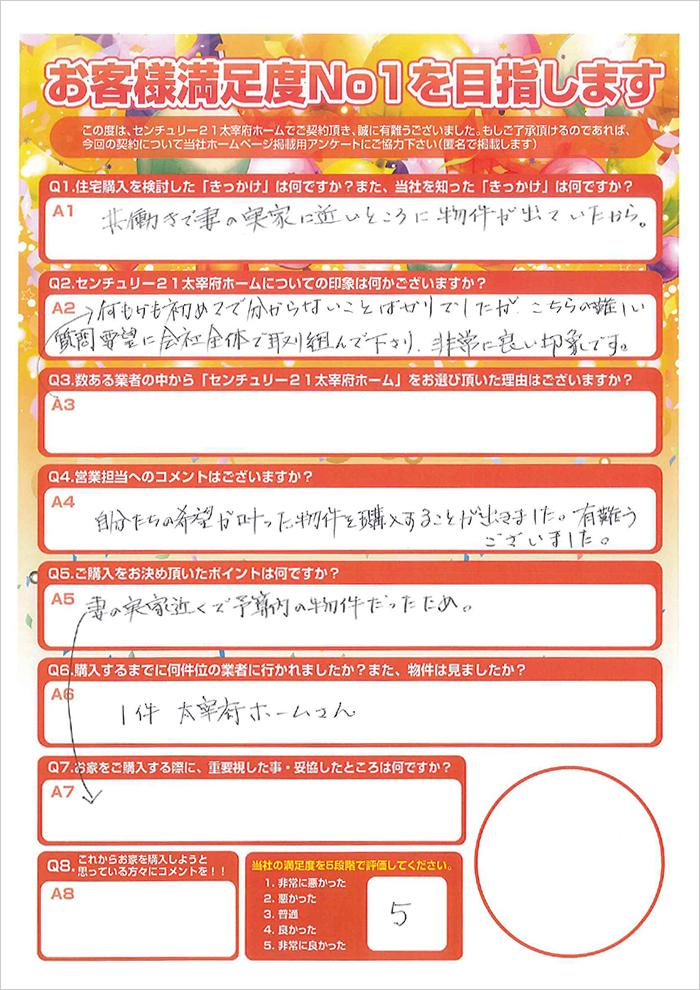 お客様満足度No1を目指します
この度は、センチュリー21太宰府ホームでご契約頂き、誠に有難うございました。もしご了承頂けるのであれば、
今回の契約について当社ホームページ掲載用アンケートにご協力下さい(匿名で掲載します)
Q1.住宅購入を検討した「きっかけ」は何ですか?また、当社を知った「きっかけ」は何ですか?
A1 共働きで妻の実家に近いところに物件が出ていたから。
Q2.センチュリー21太宰府ホームについての印象は何かございますか?
A2 何もかも初めてで分からないことばかりでしたが、こちらの難しい
質問要望に会社全体で取り組んで下さり、非常に良い印象です。
Q3.数ある業者の中から「センチュリー21太宰府ホーム」をお選び頂いた理由はございますか?
A3
Q4.営業担当へのコメントはございますか?
A4 自分たちの希望が叶った物件を購入することが出来ました。有難う
ございました。
Q5.ご購入をお決め頂いたポイントは何ですか?
A5 妻の実家近くで予算内の物件だったため。
Q6.購入するまでに何件位の業者に行かれましたか?また、物件は見ましたか?
A6 1件 太宰府ホームさん
Q7.お家をご購入する際に、重要視した事・妥協したところは何ですか?
A7
Q8.これからお家を購入しようと
思っている方々にコメントを!!
A8
当社の満足度を5段階で評価してください。
1. 非常に悪かった
2. 悪かった
3. 普通
4. 良かった
5. 非常に良かった
5